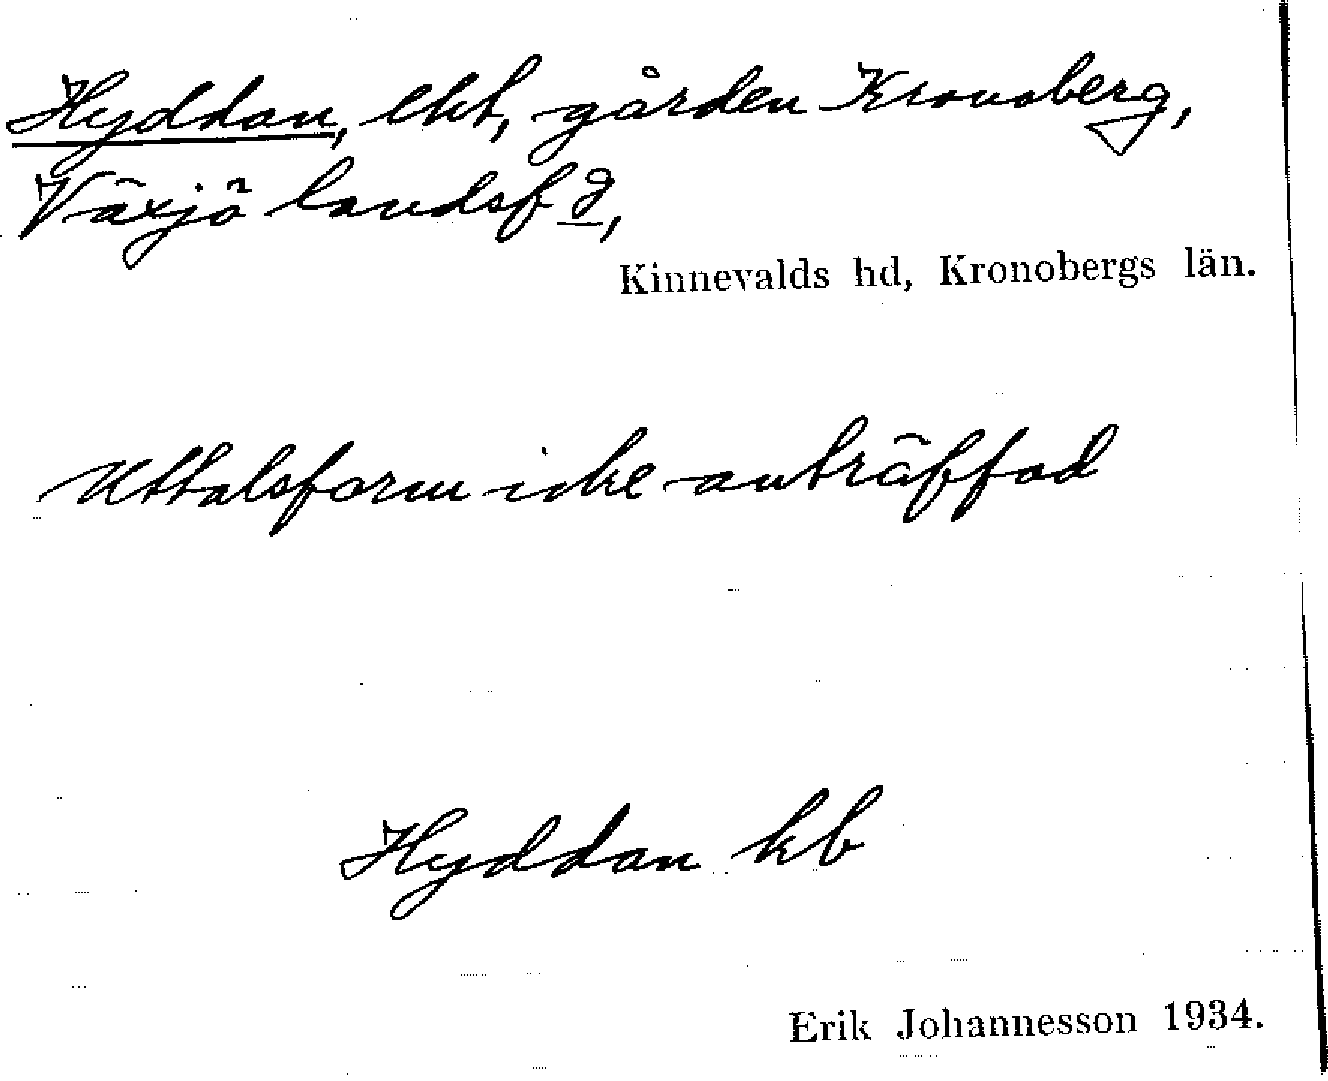 Hyddan, ekt, gården Kronoberg,
Växjö landsfg,
Kinnevalds hd, Kronobergs län.
Uttalsform icke anträffad
Hyddan kb
Erik Johannesson 1934.